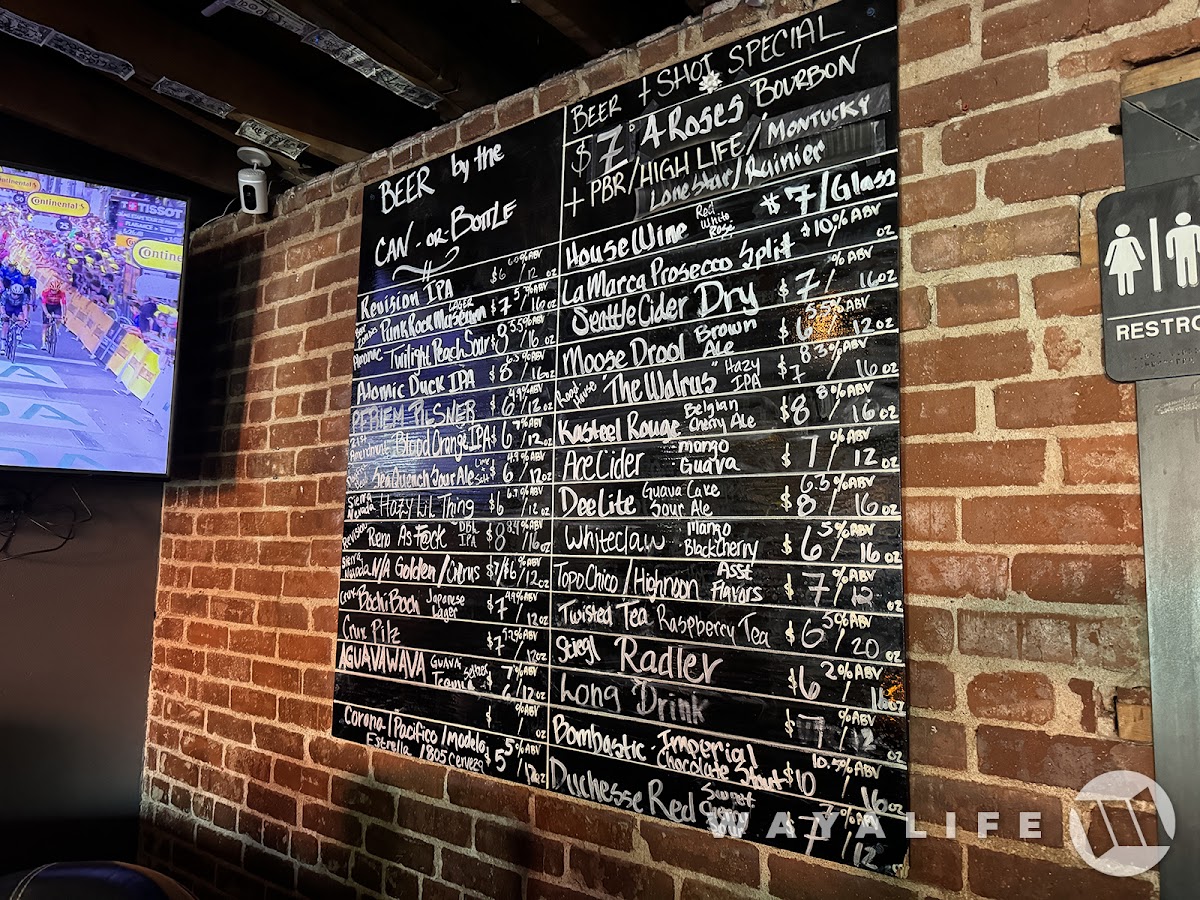 BEER by the
CAN - or - BOTTLE
Revision IPA $6 6.0% ABV / 12 oz
Punk Rock Museum LAGER $7 5% ABV / 16 oz
Atomic Twilight Peach Sour $8 5.5% ABV / 16 oz
Atomic Duck IPA $8 6.5% ABV / 16 oz
PFRIEM PILSNER $6 4.9% ABV / 12 oz
21st Amendment Blood Orange IPA $6 7% ABV / 12 oz
SeaQuench Sour Ale Lime Salt $6 4.9% ABV / 12 oz
Sierra Nevada Hazy Lil Thing $6 6.7% ABV / 12 oz
Revision Reno As F@ck DBL IPA $8 8.4% ABV / 16 oz
Sierra Nevada N/A Golden / Citrus $7/$6 % ABV / 12 oz
Crux Bochi Boch Japanese Lager $7 4.9% ABV / 12 oz
Crux Pilz $7 5.2% ABV / 12 oz
AGUAVAWAVA GUAVA Seltzer $ 7% ABV 6 / 12 oz
$ % ABV / oz
Corona / Pacifico / Modelo
Estrella / 805 Cerveza $5 5% ABV / 12 oz
BEER + SHOT SPECIAL
$7 4 Roses BOURBON
+ PBR / HIGH LIFE / MONTUCKY
Lone Star / Rainier
House Wine Red White Rose $7 / Glass
La Marca Prosecco Split $10 % ABV / oz
Seattle Cider Dry $7 % ABV / 16 oz
Moose Drool Brown Ale $6 5.5% ABV / 12 oz
Road House "The Walrus" Hazy IPA $7 8.3% ABV / 16 oz
Kasteel Rouge Belgian Cherry Ale $8 8% ABV / 16 oz
Ace Cider mango Guava $7 % ABV / 12 oz
Dee Lite Guava Cake Sour Ale $8 6.3% ABV / 16 oz
Whiteclaw Mango Black Cherry $6 5% ABV / 16 oz
Topo Chico / Highnoon Asst Flavors $7 % ABV / 12 oz
Twisted Tea Raspberry Tea $6 5% ABV / 20 oz
Stiegl Radler $6 2% ABV / 16 oz
Long Drink $7 % ABV / 12 oz
Bombastic - Imperial Chocolate Stout $10 10.5% ABV / 16 oz
Duchesse Red Sweet $7 7% ABV / 12
Continental
TISSOT
Continental
RESTRO
WAYALIFE